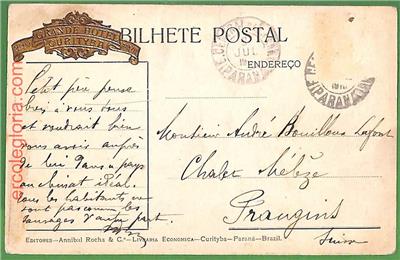 GRANDE HOTEL
CURITYBA
BILHETE POSTAL
ENDEREÇO
JUL
PARANÁ
PARANÁ
Petit père pense
bien à vous tous
et voudrait bien
vous avoir auprès
de lui dans ce pays
au climat idéal.
Tous les habitants en
sont
d'autre part.
Monsieur André Bouilloux Lafont
Chalet Mélèze
Prangins
Suisse
EDITORES—Annibal Rocha & C.ª—LIVRARIA ECONOMICA—Curityba—Paraná—Brazil.
ercolegloria.com